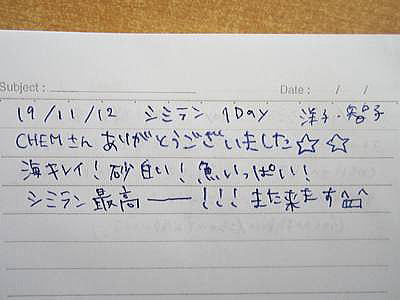 Subject : Date : / /
19/11/12 シミラン 1Day 洋子・智子
CHEMさん ありがとうございました☆☆
海キレイ！砂白い！魚いっぱい！
シミラン最高ー！！！また来ます